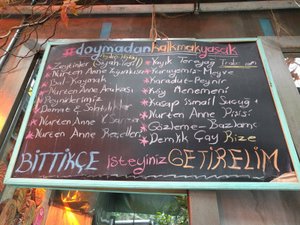 #doymadankalkmakyasak
Zeytinler (Siyah-Yeşil)
Nurten Anne
Bal Kaymak
Nurten Anne
Peynirlerimiz
Domates Salatalık
Nurten Anne
Nurten Anne Reçelleri
Köy Tereyağ Trabzon
Kuruyemiş-Meyve
Karadut-Peynir
Köy Menemeni
Kasap İsmail Sucuğu
Nurten Anne Pişisi
Gözleme-Bazlama
Demlik Çay Rize
BİTTİKÇE isteyiniz GETİRELİM